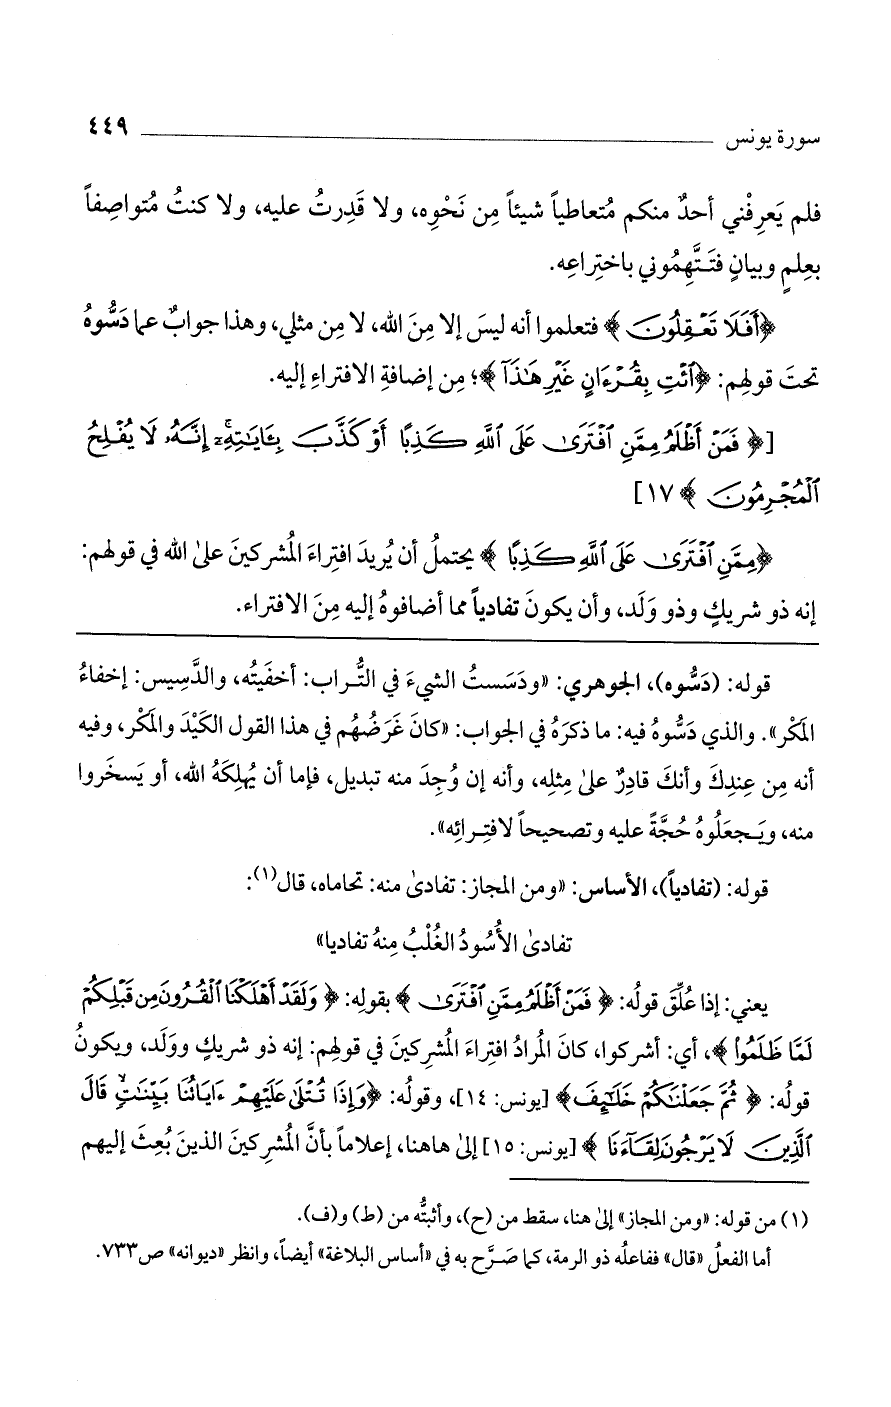 سورة يونس ٤٤٩
فلم يَعرِفْني أحدٌ منكم مُتعاطياً شيئاً مِن نَحْوِه، ولا قَدِرتُ عليه، ولا كنتُ مُتواصِفاً
بعِلمٍ وبيانٍ فتَتَّهِمُوني باختِراعِه.
﴿أَفَلَا تَعْقِلُونَ﴾ فتعلموا أنه ليسَ إلا مِنَ الله، لا مِن مثلي، وهذا جوابٌ عما دَسُّوهُ
تحتَ قولهِم: ﴿ٱئْتِ بِقُرْءَانٍ غَيْرِ هَٰذَآ﴾؛ مِن إضافةِ الافتراءِ إليه.
[﴿فَمَنْ أَظْلَمُ مِمَّنِ ٱفْتَرَىٰ عَلَى ٱللَّهِ كَذِبًا أَوْ كَذَّبَ بِـَٔايَٰتِهِۦٓ ۚ إِنَّهُۥ لَا يُفْلِحُ
ٱلْمُجْرِمُونَ﴾ ١٧]
﴿مِمَّنِ ٱفْتَرَىٰ عَلَى ٱللَّهِ كَذِبًا﴾ يحتملُ أن يُريدَ افتِراءَ المُشركينَ علىٰ الله في قولهم:
إنه ذو شريكٍ وذو وَلَد، وأن يكونَ تفادياً مما أضافوهُ إليه مِنَ الافتراء.
قوله: (دَسُّوه)، الجوهري: «ودَسَستُ الشيءَ في التُّراب: أخفَيتُه، والدَّسِيس: إخفاءُ
المَكْر». والذي دَسُّوهُ فيه: ما ذكرَهُ في الجواب: «كانَ غَرَضُهُم في هذا القول الكَيْدَ والمَكْر، وفيه
أنه مِن عِندِكَ وأنكَ قادِرٌ علىٰ مِثلِه، وأنه إن وُجِدَ منه تبديل، فإما أن يُهلِكَهُ الله، أو يَسخَروا
منه، ويَجعَلُوهُ حُجَّةً عليه وتصحيحاً لافتِرائِه».
قوله: (تفادياً)، الأساس: «ومن المجاز: تفادىٰ منه: تحاماه، قال(١):
تفادىٰ الأُسُودُ الغُلْبُ مِنهُ تفاديا»
يعني: إذا عُلِّقَ قولُه: ﴿فَمَنْ أَظْلَمُ مِمَّنِ ٱفْتَرَىٰ﴾ بقولِه: ﴿وَلَقَدْ أَهْلَكْنَا ٱلْقُرُونَ مِن قَبْلِكُمْ
لَمَّا ظَلَمُوا۟﴾، أي: أشركوا، كانَ المُرادُ افتِراءَ المُشرِكينَ في قولهِم: إنه ذو شريكٍ ووَلَد، ويكونُ
قولُه: ﴿ثُمَّ جَعَلْنَٰكُمْ خَلَٰٓئِفَ﴾ [يونس: ١٤]، وقولُه: ﴿وَإِذَا تُتْلَىٰ عَلَيْهِمْ ءَايَاتُنَا بَيِّنَٰتٍ ۙ قَالَ
ٱلَّذِينَ لَا يَرْجُونَ لِقَآءَنَا﴾ [يونس: ١٥] إلىٰ هاهنا، إعلاماً بأنَّ المُشرِكينَ الذينَ بُعِثَ إليهم
(١) من قوله: «ومن المجاز» إلىٰ هنا، سقط من (ح)، وأثبتُّه من (ط) و(ف).
أما الفعلُ «قال» ففاعلُه ذو الرمة، كما صَرَّح به في «أساس البلاغة» أيضاً، وانظر «ديوانه» ص٧٣٣.